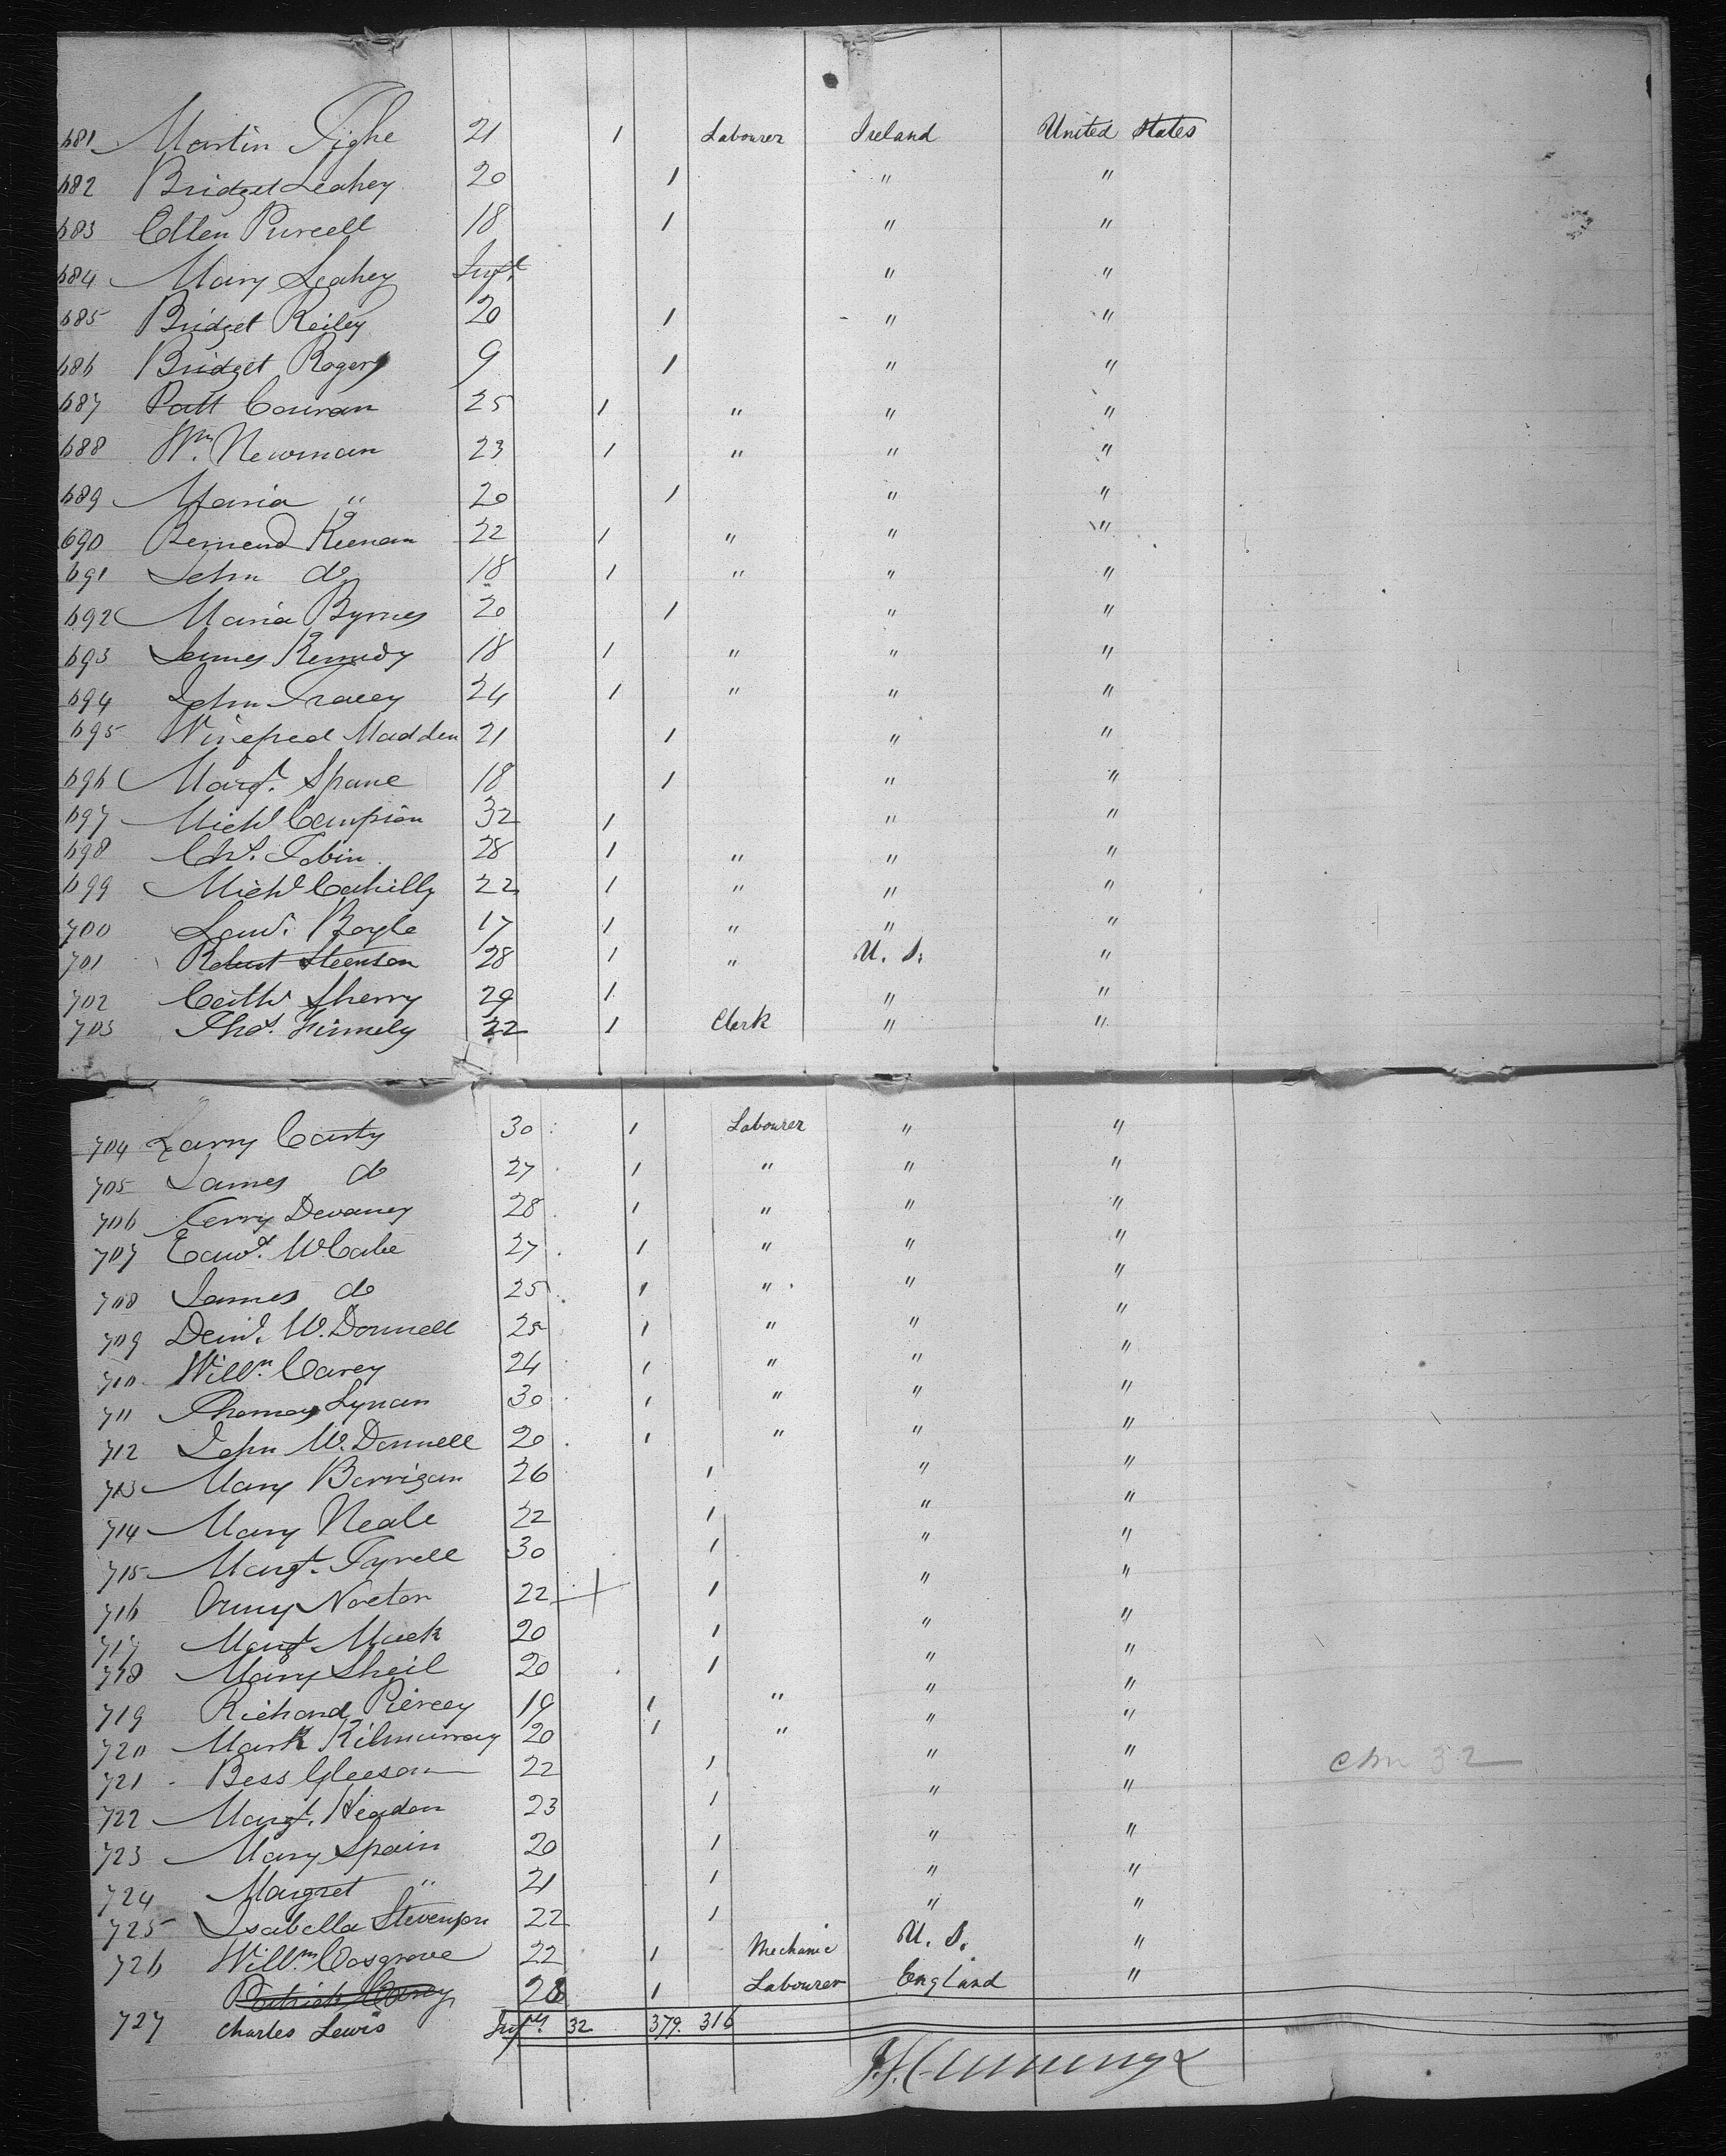 681 Martin Tighe 21 1 Labourer Ireland United States
682 Bridget Leahey 20 1 " "
683 Ellen Purcell 18 1 " "
684 Mary Leahey Inft " "
685 Bridget Reiley 20 1 " "
686 Bridget Rogers 9 1 " "
687 Patt Couran 25 1 " " "
688 Wm. Newman 23 1 " " "
689 Maria " 20 1 " "
690 Bernend Keenan 22 1 " " "
691 John do 18 1 " " "
692 Maria Byrnes 20 1 " "
693 James Kennedy 18 1 " " "
694 John Tracey 24 1 " " "
695 Winefred Madden 21 1 " "
696 Margt. Spane 18 1 " "
697 Michl Campion 32 1 " "
698 Chs. Tobin 28 1 " " "
699 Michl Cahilly 22 1 " " "
700 Lawr. Boyle 17 1 " " "
701 Robert Steenson 28 1 " U. S. "
702 Sherry 29 1 " "
703 Thos. Finnely 22 1 Clerk " "
704 Larry Carty 30 1 Labourer " "
705 James do 27 1 " " "
706 Kerry Devaney 28 1 " " "
707 Edwd. McCabe 27 1 " " "
708 James do 25 1 " " "
709 Danl. McDonnell 25 1 " " "
710 Willm. Carey 24 1 " " "
711 Thomas Lynan 30 1 " " "
712 John McDonnell 20 1 " " "
713 Mary Barrigan 26 1 " "
714 Mary Neale 22 1 " "
715 Margt. Tyrell 30 1 " "
716 Norton 22 + 1 " "
717 Margt Mack 20 1 " "
718 Mary Sheil 20 1 " "
719 Richard Piercey 19 1 " " "
720 Mark Kilmurray 20 1 " " "
721 Bess Gleeson 22 1 " "
722 Margt. Headon 23 1 " "
723 Mary Spain 20 1 " "
724 Margret " 21 1 " "
725 Isabella Stevenson 22 1 " "
726 Willm Cosgrove 22 1 Mechanic U. S. "
Patrick Carey 28 1 Labourer England "
727 Charles Lewis 32 379. 316
cm 32